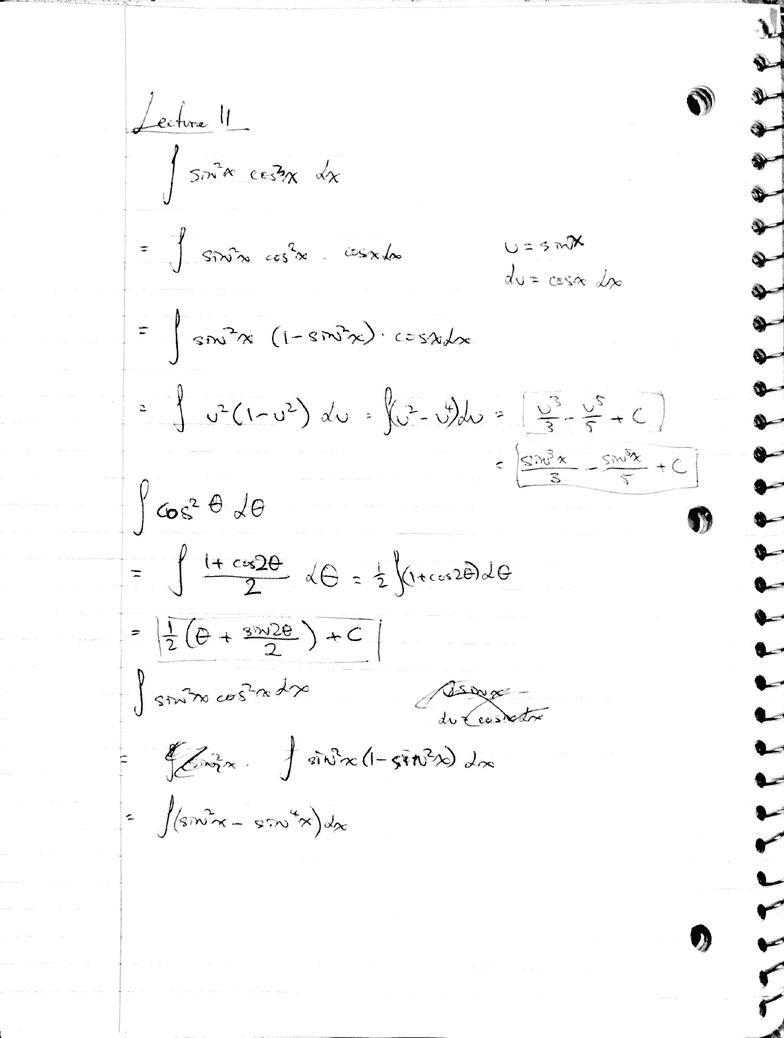 Lecture 11
∫ sin²x cos³x dx
= ∫ sin²x cos²x · cosx dx
u = sinx
du = cosx dx
= ∫ sin²x (1-sin²x) · cosx dx
= ∫ u²(1-u²) du = ∫(u² - u⁴)du = u³/3 - u⁵/5 + C
= sin³x/3 - sin⁵x/5 + C
∫ cos² θ dθ
= ∫ (1 + cos2θ)/2 dθ = ½ ∫(1+cos2θ)dθ
= ½ (θ + sin2θ/2) + C
∫ sin²x cos²x dx
= ∫ sin²x (1-sin²x) dx
= ∫(sin²x - sin⁴x) dx